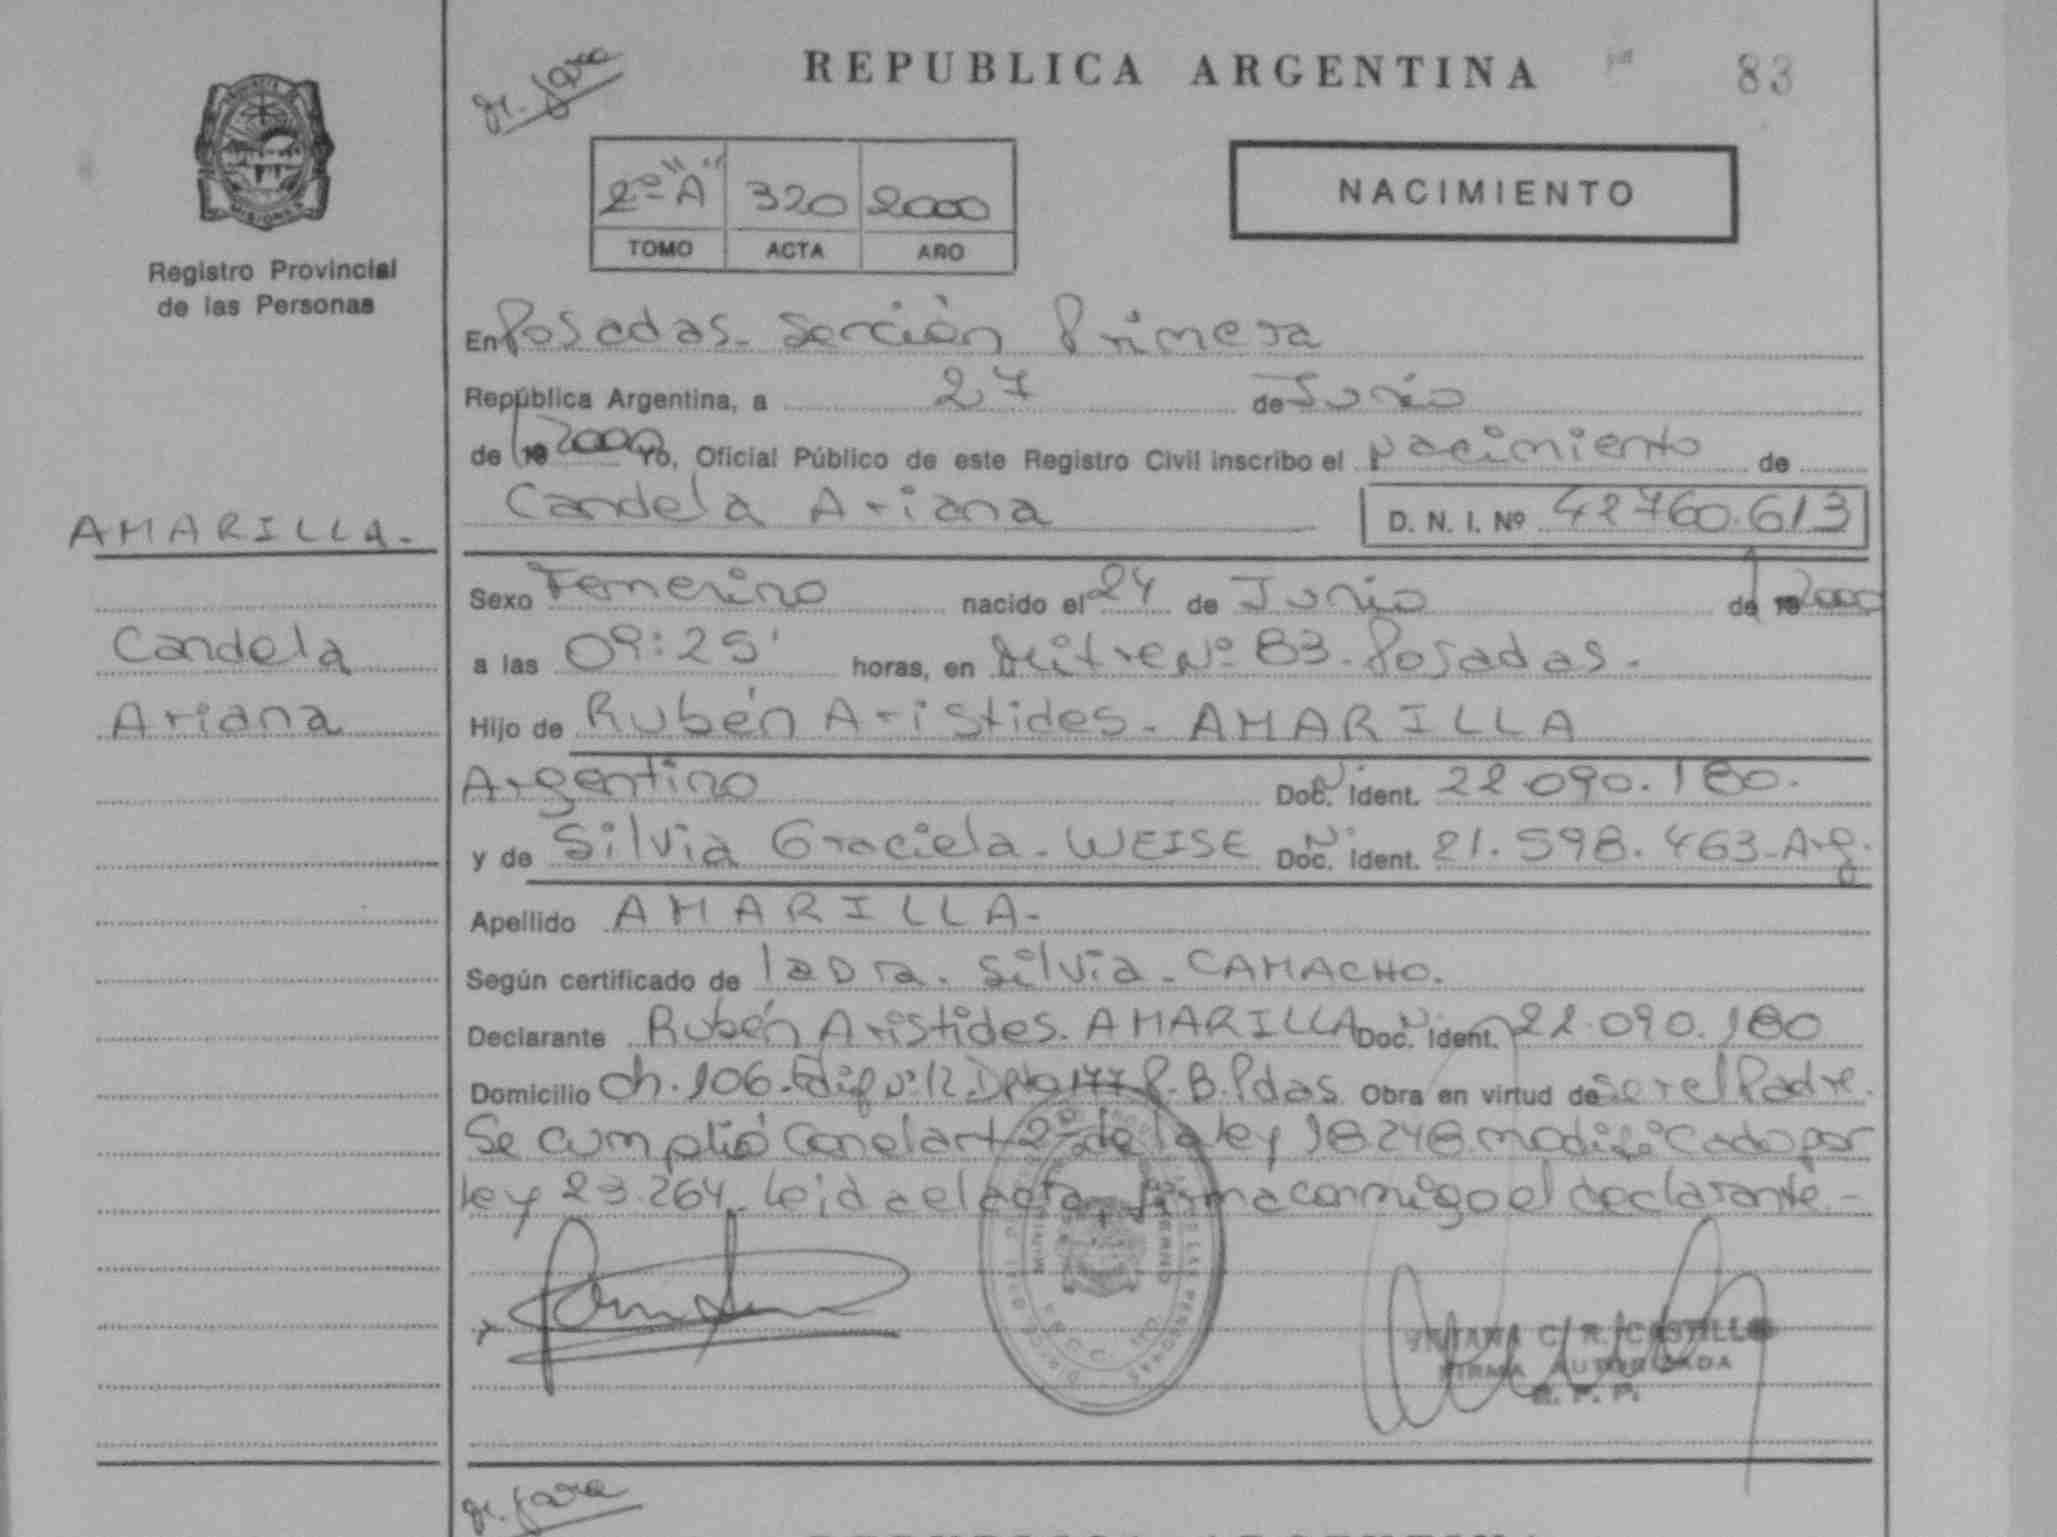 REPUBLICA ARGENTINA
83
2º "A" 320 2000
TOMO ACTA AÑO
NACIMIENTO
MISIONES
Registro Provincial
de las Personas
En Posadas - Sección Primera
República Argentina, a 27 de Junio
de 19 2000 Yo, Oficial Público de este Registro Civil inscribo el nacimiento de
Candela Ariana D. N. I. Nº 42760.613
AMARILLA.-
Candela
Ariana
Sexo Femenino nacido el 24 de Junio de 19 2000
a las 09:25' horas, en Mitre Nº 83 - Posadas.
Hijo de Rubén Aristides - AMARILLA
Argentino Doc. Ident. 22.090.180.
y de Silvia Graciela - WEISE Doc. Ident. 21.598.463 - Arg.
Apellido AMARILLA-
Según certificado de la Dra. Silvia - CAMACHO.
Declarante Rubén Aristides. AMARILLA Doc. Ident. 22.090.180
Domicilio Ch. 106 - Edif Nº 12 Dpto 177 P.B. Pdas. Obra en virtud de ser el Padre.
Se cumplió con el art 2º de la ley 18.248 modificado por
ley 23.264. Leida el acta, firma conmigo el declarante.-
VIVIANA C. R. CASTILLO
FIRMA AUTORIZADA
R. P. P.